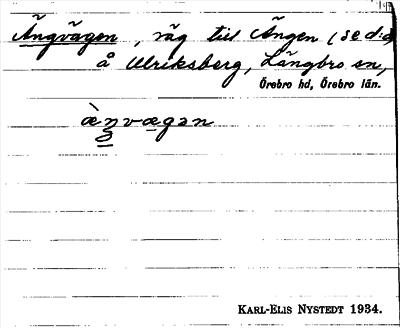 Ängvägen, väg till Ängen (se d:o)
å Ulriksberg, Längbro sn,
Örebro hd, Örebro län.
KARL-ELIS NYSTEDT 1934.